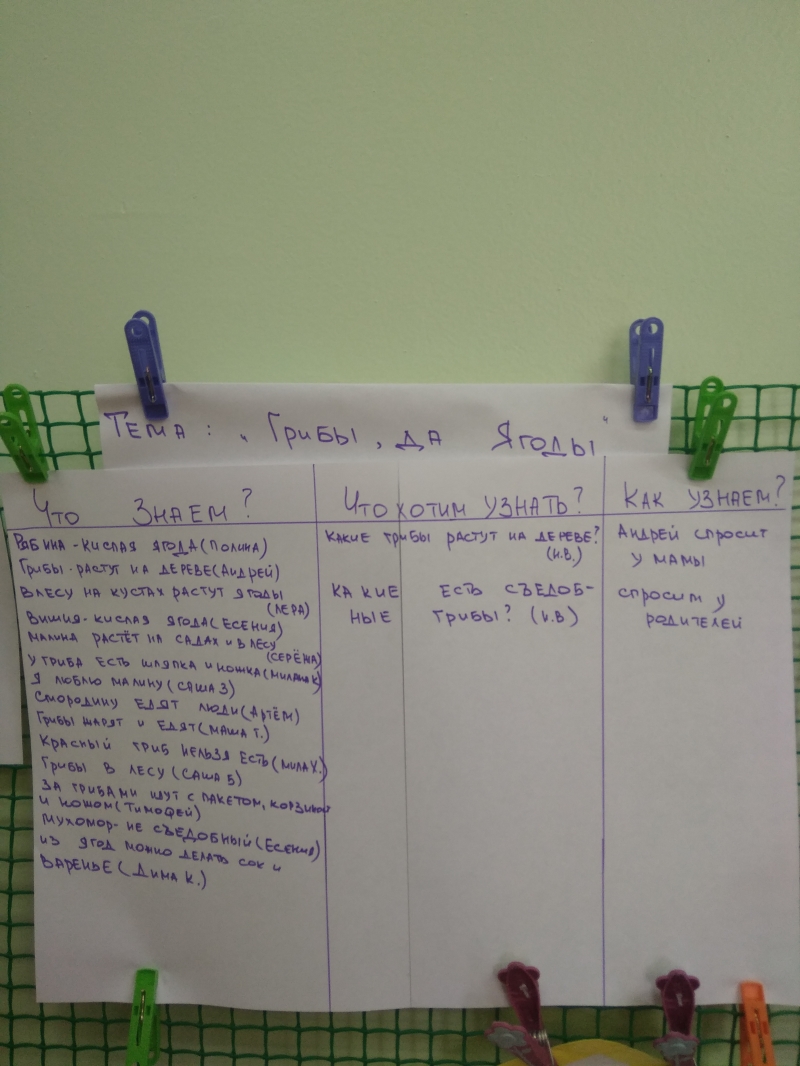 Тема: „Грибы, да Ягоды"
Что знаем?
Рябина - кислая ягода (Полина)
Грибы - растут на дереве (Андрей)
В лесу на кустах растут ягоды
(Лера)
Вишня - кислая ягода (Есения)
Малина растёт на садах и в лесу
(Серёжа)
У гриба есть шляпка и ножка (Милана К)
Я люблю малину (Саша З)
Смородину едят люди (Артём)
Грибы жарят и едят (Маша Т.)
Красный гриб нельзя есть (Мила Х.)
Грибы в лесу (Саша Б)
За грибами идут с пакетом, корзиной
и ножом (Тимофей)
Мухомор - не съедобный (Есения)
Из ягод можно делать сок и
варенье (Дима К.)
Что хотим узнать?
Какие грибы растут на дереве?
(И.В.)
Какие есть съедоб-
ные грибы? (И.В)
Как узнаем?
Андрей спросит
у мамы
Спросим у
родителей